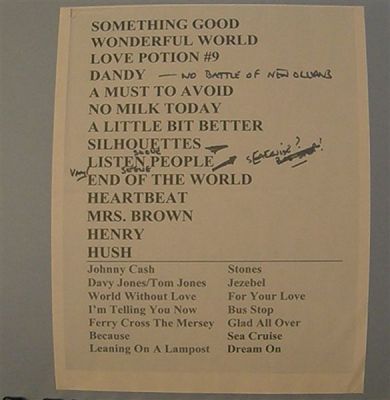 SOMETHING GOOD
WONDERFUL WORLD
LOVE POTION #9
DANDY — NO BATTLE OF NEW ORLEANS
A MUST TO AVOID
NO MILK TODAY
A LITTLE BIT BETTER
SILHOUETTES
LISTEN PEOPLE
END OF THE WORLD
HEARTBEAT
MRS. BROWN
HENRY
HUSH
Johnny Cash Stones
Davy Jones/Tom Jones Jezebel
World Without Love For Your Love
I'm Telling You Now Bus Stop
Ferry Cross The Mersey Glad All Over
Because Sea Cruise
Leaning On A Lampost Dream On